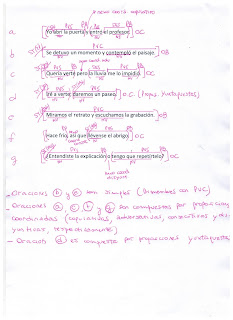 nexo coord copulativo
a Yo abrí la puerta y entró el profesor. OC
PVC
b Se detuvo un momento y contempló el paisaje. OS
nexo coord adv
c Quería verte pero la lluvia me lo impidió. OC
d Iré a verte; daremos un paseo. O.C. (Props. Yuxtapuestas)
PVC
e Miramos el retrato y escuchamos la grabación. OS
f Hace frío, así que llévense el abrigo. OC
g ¿Entendiste la explicación o tengo que repetírtelo? OC
nexo coord
- Oraciones b y e son simples (Bimembres con PVC)
- Oraciones a c f y g son compuestas por proposiciones
coordinadas (copulativas, adversativas, consecutivas y
respectivamente)
- Oración d es compuesta por proposiciones yuxtapuestas